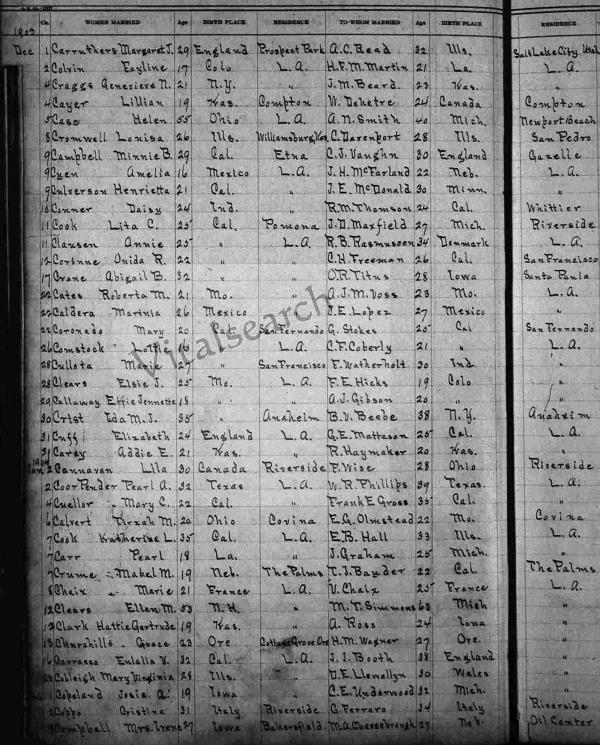 WOMEN MARRIED AGE BIRTH PLACE RESIDENCE TO-WHOM MARRIED Age BIRTH PLACE RESIDENCE
1903
Dec 1 Carruthers Margaret J. 29 England Prospect Park A.C. Read 32 Ills. Salt Lake City Utah
2 Colvin Fayline 17 Colo L.A. H.F.M. Martin 21 La. L.A.
4 Craggs Genevieve N. 21 N.Y. " J.M. Beard 23 Kas. "
4 Cayer Lillian 19 Kas. Compton V. Dehetre 24 Canada Compton
5 Case Helen 55 Ohio L.A. A.N. Smith 40 Mich. Newport Beach
8 Cromwell Louisa 26 Ills. Williamsburg Kas. C. Davenport 28 Ills. San Pedro
9 Campbell Minnie B. 29 Cal. Etna C.J. Vaughn 30 England Gazelle
9 Cyen Amelia 16 Mexico L.A. J.H. McFarland 22 Neb. L.A.
9 Culverson Henrietta 21 Cal. " J.E. McDonald 30 Minn. "
10 Conner Daisy 24 Ind. " R.M. Thomson 24 Cal. Whittier
11 Cook Lita C. 25 Cal. Pomona J.D. Maxfield 27 Mich. Riverside
11 Clausen Annie 25 " L.A. R.B. Rasmussen 34 Denmark L.A.
12 Corinne Onida R. 22 " " C.H. Freeman 26 Cal. San Francisco
17 Crane Abigail B. 32 " " O.R. Titus 28 Iowa Santa Paula
22 Cates Roberta M. 21 Mo. " A.J.M. Voss 23 Mo. L.A.
22 Caldera Marinia 26 Mexico " J.E. Lopez 27 Mexico "
22 Coronado Mary 20 Cal. San Fernando G. Stokes 25 Cal San Fernando
26 Comstock Lottie 16 " L.A. C.F. Coberly 21 " L.A.
28 Cullota Marie 27 " San Francisco F. Watherholt 30 Ind. "
28 Clears Elsie J. 25 Mo. L.A. F.E. Hicks 19 Colo "
29 Callaway Effie Jennette 18 " " A.J. Gibson 20 " "
30 Crist Ida M.J. 35 " Anaheim B.V. Beebe 38 N.Y. Anaheim
31 Cuff Elizabeth 24 England L.A. G.E. Matteson 25 Cal. L.A.
31 Carey Addie E. 21 Kas. " R. Haymaker 20 Kas. "
1904
Jan 2 Cannavan Lila 30 Canada Riverside F. Wise 28 Ohio Riverside
2 CoorPender Pearl A. 32 Texas L.A. W.R. Phillips 39 Texas. L.A.
4 Cuellor Mary C. 22 Cal. " Frank E Gross 35 Cal. "
6 Calvert Tirzah M. 20 Ohio Covina E.G. Olmstead 22 Mo. Covina
7 Cook Katherine L. 35 Cal. L.A. E.B. Hall 33 Ills. L.A.
7 Carr Pearl 18 La. " J. Graham 25 Mich. "
7 Crume Mabel M. 19 Neb. The Palms T.J. Bauder 22 Cal. The Palms
8 Chaix Marie 21 France L.A. V. Chaix 25 France L.A.
12 Clears Ellen M. 53 N.H. " M.T. Simmons 63 Mich "
12 Clark Hattie Gertrude 19 Kas. " A. Ross 24 Iowa "
13 Churchills Grace 23 Ore Cottage Grove Ore H.M. Wagner 27 Ore. "
16 Carrasco Eulalia V. 32 Cal. L.A. J.J. Booth 38 England "
Calleigh Mary Virginia 28 Ills. " D.E. Llewellyn 30 Wales "
1 Copeland Josie A. 19 Iowa " C.E. Underwood 32 Mich. "
2 Coppo Cristina 31 Italy Riverside G. Ferraro 34 Italy Riverside
Campbell Mrs. Irene 27 Iowa Bakersfield M.A. Cheesebrough 27 Neb. Oil Center
Vitalsearch